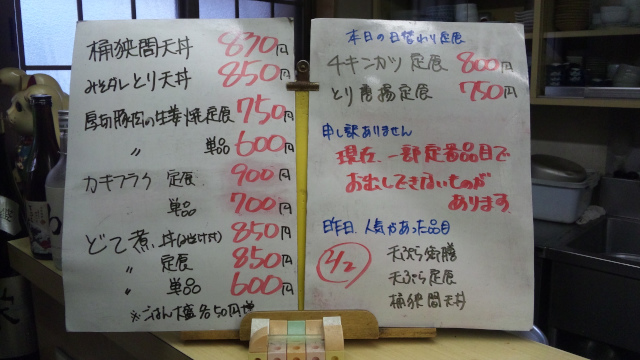 桶狭間天丼 870円
みそダレとり天丼 850円
厚切豚肉の生姜焼定食 750円
〃 単品 600円
カキフライ 定食 900円
単品 700円
どて煮、丼(みそ汁付) 850円
〃 定食 850円
〃 単品 600円
※ごはん大盛各50円増
本日の日替わり定食
チキンカツ定食 800円
とり唐揚定食 750円
申し訳ありません
現在、一部定番品目で
お出しできないものが
あります。
昨日、人気があった品目
4/2
天ぷら御膳
天ぷら定食
桶狭間天丼